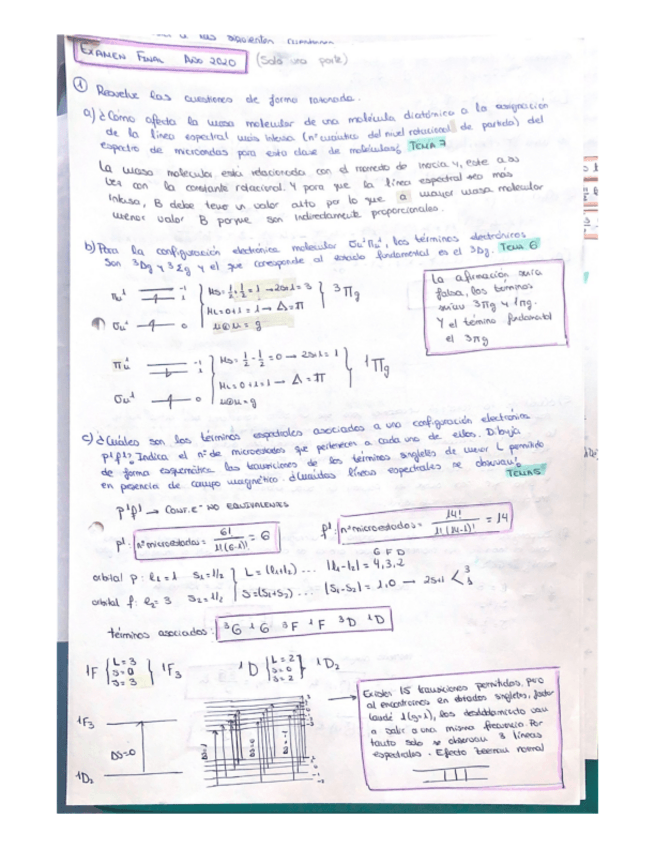 a las siguientes cuestiones
EXAMEN FINAL AÑO 2020 (Solo una parte)
① Resuelve las cuestiones de forma razonada.
a) ¿Cómo afecta la masa molecular de una molécula diatómica a la asignación
de la línea espectral más intensa (nº cuántico del nivel rotacional de partida) del
espectro de microondas para esta clase de moléculas? TEMA 7
La masa molecular está relacionada con el momento de inercia y, este a su
vez con la constante rotacional. Y para que la línea espectral sea más
intensa, B debe tener un valor alto por lo que a mayor masa molecular
menor valor B porque son indirectamente proporcionales.
b) Para la configuración electrónica molecular σu¹πu¹, los términos electrónicos
son ³Δg y ³Σg y el que corresponde al estado fundamental es el ³Δg. TEMA 6
πu¹ -1 1
σu¹ 0
Ms = 1/2 + 1/2 = 1 → 2S+1 = 3
ML = 0+1 = 1 → Λ = π
u⊗u = g
³Πg
La afirmación sería
falsa, los términos
serían ³Πg y ¹Πg.
Y el término fundamental
el ³Πg
πu¹ -1 1
σu¹ 0
Ms = 1/2 - 1/2 = 0 → 2S+1 = 1
ML = 0+1 = 1 → Λ = π
u⊗u = g
¹Πg
c) ¿Cuáles son los términos espectrales asociados a una configuración electrónica
p¹f¹? Indica el nº de microestados que pertenecen a cada uno de ellos. Dibuja
de forma esquemática las transiciones de los términos singletes de menor L permitido
en presencia de campo magnético. ¿Cuántas líneas espectrales se observan? TEMA 5
p¹f¹ → CONF. e⁻ NO EQUIVALENTES
p¹: nº microestados = 6! / 1!(6-1)! = 6
f¹: nº microestados = 14! / 1!(14-1)! = 14
G F D
orbital p: l₁ = 1 s₁ = 1/2 L = (l₁+l₂) ... |l₁-l₂| = 4,3,2
orbital f: l₂ = 3 s₂ = 1/2 S = (s₁+s₂) ... |s₁-s₂| = 1,0 → 2s+1 < 3 1
términos asociados: ³G ¹G ³F ¹F ³D ¹D
¹F { L = 3 S = 0 J = 3 } ¹F₃
¹D { L = 2 S = 0 J = 2 } ¹D₂
¹F₃
ΔS=0
¹D₂
Existen 15 transiciones permitidas, pero
al encontrarnos en estados singletes, factor
Landé 1 (g=1), los desdoblamientos van
a salir a una misma frecuencia. Por
tanto solo se observan 3 líneas
espectrales. Efecto Zeeman normal